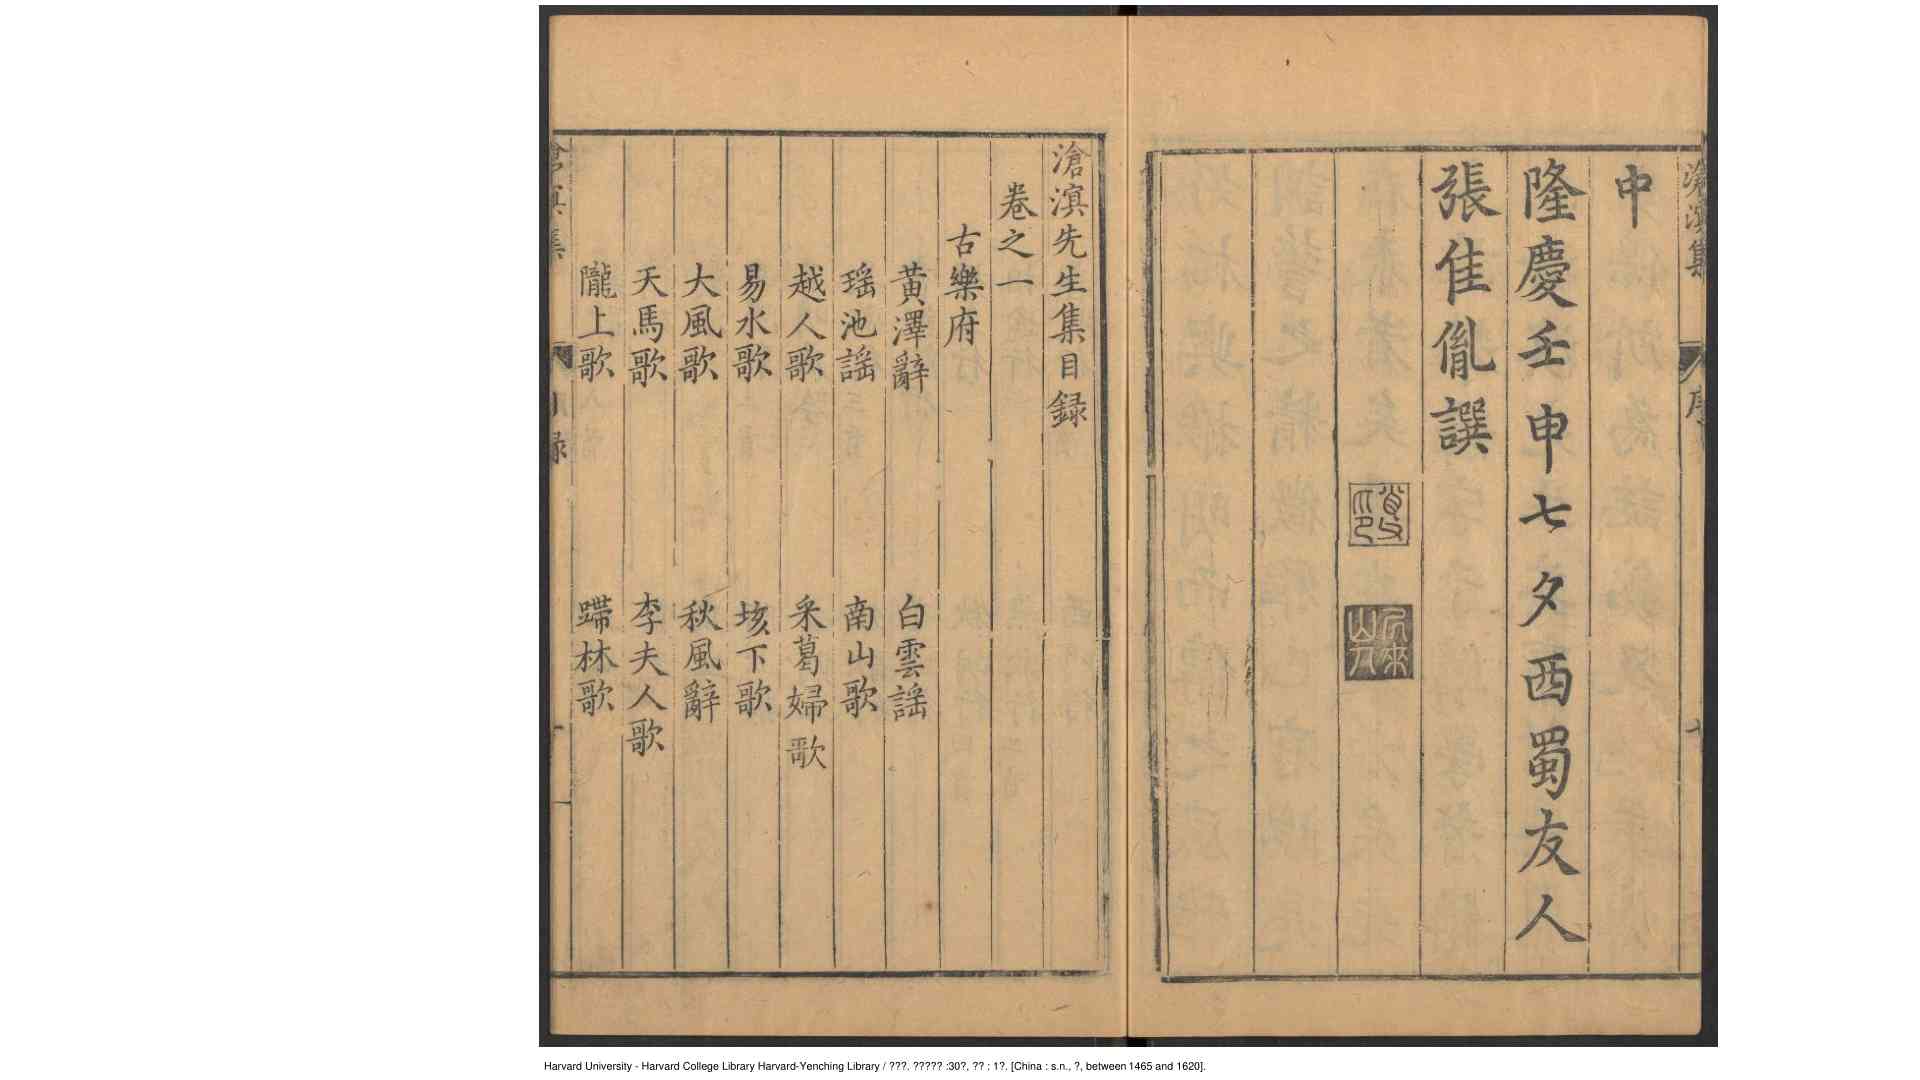 中
隆慶壬申七夕西蜀友人
張佳胤譔
滄溟先生集目録
卷之一
古樂府
黃澤辭 白雲謡
瑶池謡 南山歌
越人歌 采葛婦歌
易水歌 垓下歌
大風歌 秋風辭
天馬歌 李夫人歌
隴上歌 蹛林歌
Harvard University - Harvard College Library Harvard-Yenching Library / ???. ????? :30?, ?? ; 1?. [China : s.n., ?, between 1465 and 1620].